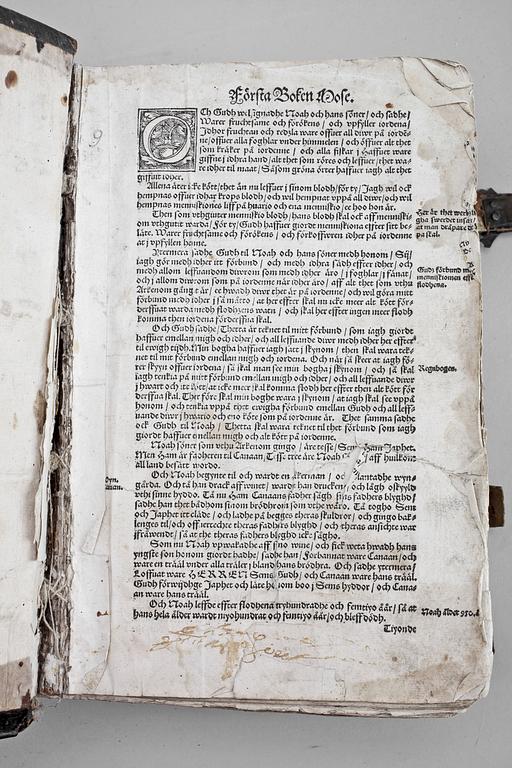 Första Boken Mose.
OCh Gudh welsignadhe Noah och hans söner / och sadhe /
Warer fruchtsame och förökens / och vpfyller iordena /
Idhor fruchtan och redzla ware offuer all diwr på iordé-
ne / offuer alla foghlar vnder himmelen / och öffuer alt thet
som kräker på iordenne / och alla fiskar j Haffuet ware
giffne j idhra hand / alt thet som röres och leffuer / thet wa-
re idher til maat / Såsom gröna örter haffuer iagh alt thet
giffuit idher.
Allena äter icke kött / thet än nu leffuer j sinom blodh / för ty / Iagh wil ock
hempnas offuer idhar kropps blodh / och wil hempnat vppå all diwr / och wil
hempnas menniskiones liff på hwario och ena menniskio / ee hoo hon är.
Then som vthgiuter menniskios blodh / hans blodh skal ock aff menniskio
om vthgutit warda / För ty / Gudh haffuer giordt menniskiona effter sitt be-
läte. Warer fruchtsamme och förökens / och förkoffren idher på iordenne
at j vpfyllen henne.
Ytermera sadhe Gudh til Noah och hans söner medh honom / Sij /
iagh gör medh idher itt förbund / och medh idhra sädh effter idher / och
medh allom leffuandom diwrom som medh idher äro / j foghlar / j fänat /
och j allom diwrom som på iordenne när idher äro / aff alt thet som vthu
Arkenom gång it är / ehwadh diwr thet är på iordenne / och wil göra mitt
förbund medh idher j så motto / at her effter skal nu icke meer alt kött för-
derffuat warda medh flodhzens watn / och skal her effter ingen meer flodh
komma then iordena förderffua skal.
Och Gudh sadhe / Thetta är teknet til mitt förbund / som iagh giordt
haffuer emellan migh och idher / och all leffuande diwr medh idher her effter
til ewigh tijdh. Min bogha haffuer iagh satt j skynom / then skal wara tek-
net til mitt förbund emellan migh och iordena. Och när så skeer at iagh fö-
rer skyyn offuer iordena / så skal man see min bogha j skynom / och så skal
iagh tenkia på mitt förbund emellan migh och idher / och all leffuande diwr
j hwart och itt kött / at icke meer skal komma flodh her effter then alt kött för-
derffua skal. Ther före skal min boghe wara j skynom / at iagh skal see vppå
honom / och tenkia vppå thet ewigha förbund emellan Gudh och all leff-
nande diwr j hwario och eno köte som på iordenne är. Thet samma sadhe
ock Gudh til Noah / Thetta skal wara teknet til thet förbund som iagh
giordt haffuer emellan migh och alt kött på iordenne.
Noah söner som vthu Arkenom gingo / äre tesse / Sem Ham Japhet.
Men Ham är fadheren til Canaan, Tesse tree äre Noah aff huilkom
all land besätt wordo.
Och Noah begynte och til och wardt en åkerman / oc lantadhe wyn-
gårda. Och tå han drack aff winet / wardt han drucken / och lågh oskyld
vthi sinne hyddo. Tå nu Ham Canaans fadher sågh sins fadhers blygdh /
sadhe han thet bådhom sinom brödhrom som vthe wåro. Tå togho Sem
och Japhet itt clädhe / och ladhe på begges theras skuldror / och gingo bak-
lenges til / och offuertechte theras fadhers blyghd / och theras ansichte war
ifråwendt / så at the theras fadhers bleghd icke såghe.
Som nu Noah vpwaknadhe aff sino wine / och fick weta hwadh hans
yngste son honom giordt hadhe / sadhe han / Forbannat ware Canaan / och
ware en trääl vnder alla trälar j bland hans brödhra. Och sadhe ytermera /
Loffuat ware HERREN Sems Gudh / och Canaan ware hans trääl.
Gudh förwijdhge Japhet och låte honom boo j Sems hyddor / och Cana-
an ware hans trääl.
Och Noah leffde effter flodhena tryhundradhe och femtiyo åår / så at
hans hela ålder wardt niyohundrat och femtiyo åår / och bleff dödh.
Tiyonde
Her är thet werldzli-
gha swerdet insatt /
at man dråpare drä-
pa skal.
Gudz förbund medh
menniskiomen effter
flodhena.
Regnboges.
Noah ålder 950. å